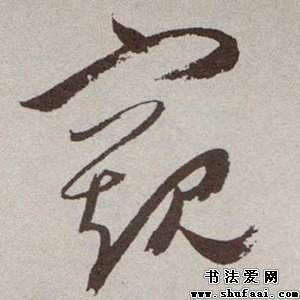 窺
书法爱网
www.shufaai.com